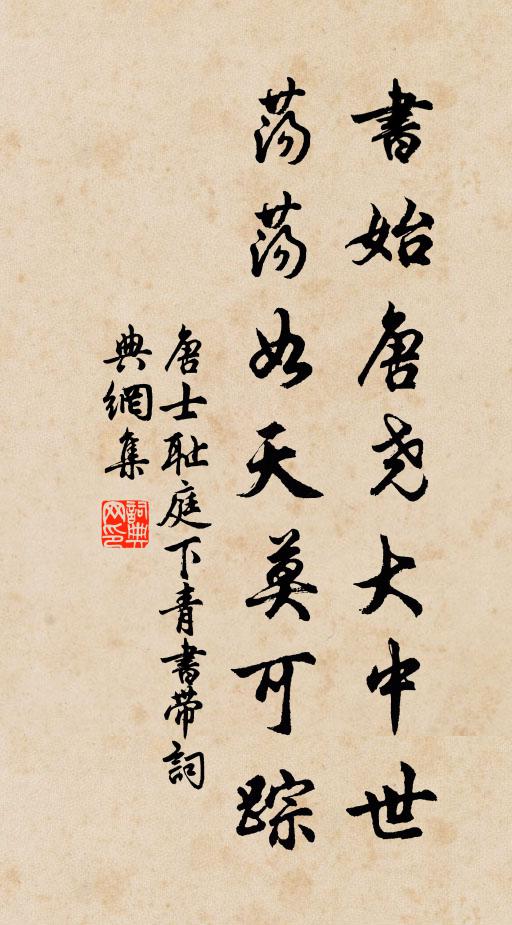 書始唐尧大中世
荡荡如天莫可踪
唐士耻庭下青書带詞
典網集
詞典网印